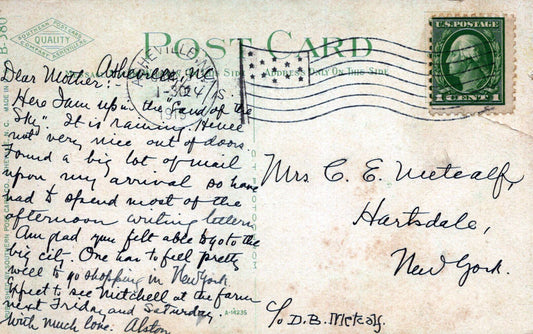 B-380
SOUTHERN POST CARD
QUALITY
COMPANY ASHEVILLE
POST CARD
ADDRESS ONLY ON THIS SIDE
U.S. POSTAGE
1 CENT 1
ASHEVILLE N.C.
1-30
191
Asheville, N.C.
Dear Mother:-
Here I am up in the "Land of the
Sky". It is raining. Hence
not very nice out of doors.
Found a big lot of mail
upon my arrival so have
had to spend most of the
afternoon writing letters.
Am glad you felt able to go to the
big city. One has to feel pretty
well to go shopping in New York
Expect to see Mitchell at the farm
next Friday and Saturday.
With much love. Alston
Mrs C. E. Metcalf,
Hartsdale,
New York.
c/o D.B. Metcalf
A-14235